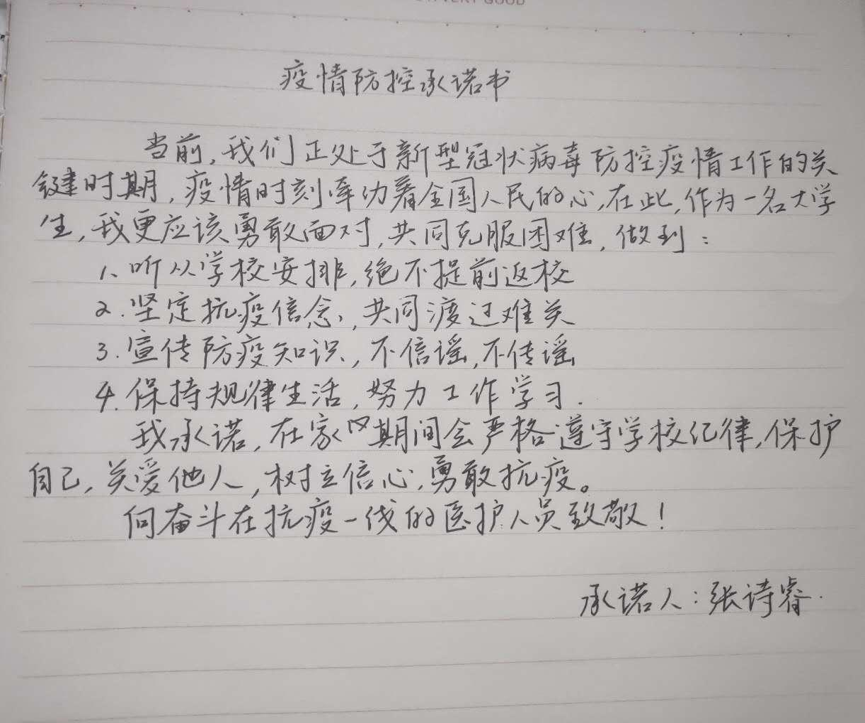 VERY GOOD
疫情防控承诺书
当前,我们正处于新型冠状病毒防控疫情工作的关
键时期,疫情时刻牵动着全国人民的心,在此,作为一名大学
生,我更应该勇敢面对,共同克服困难,做到:
1、听从学校安排,绝不提前返校
2.坚定抗疫信念,共同渡过难关
3.宣传防疫知识,不信谣,不传谣
4.保持规律生活,努力工作学习.
我承诺,在家期间会严格遵守学校纪律,保护
自己,关爱他人,树立信心,勇敢抗疫。
向奋斗在抗疫一线的医护人员致敬!
承诺人:张诗睿.